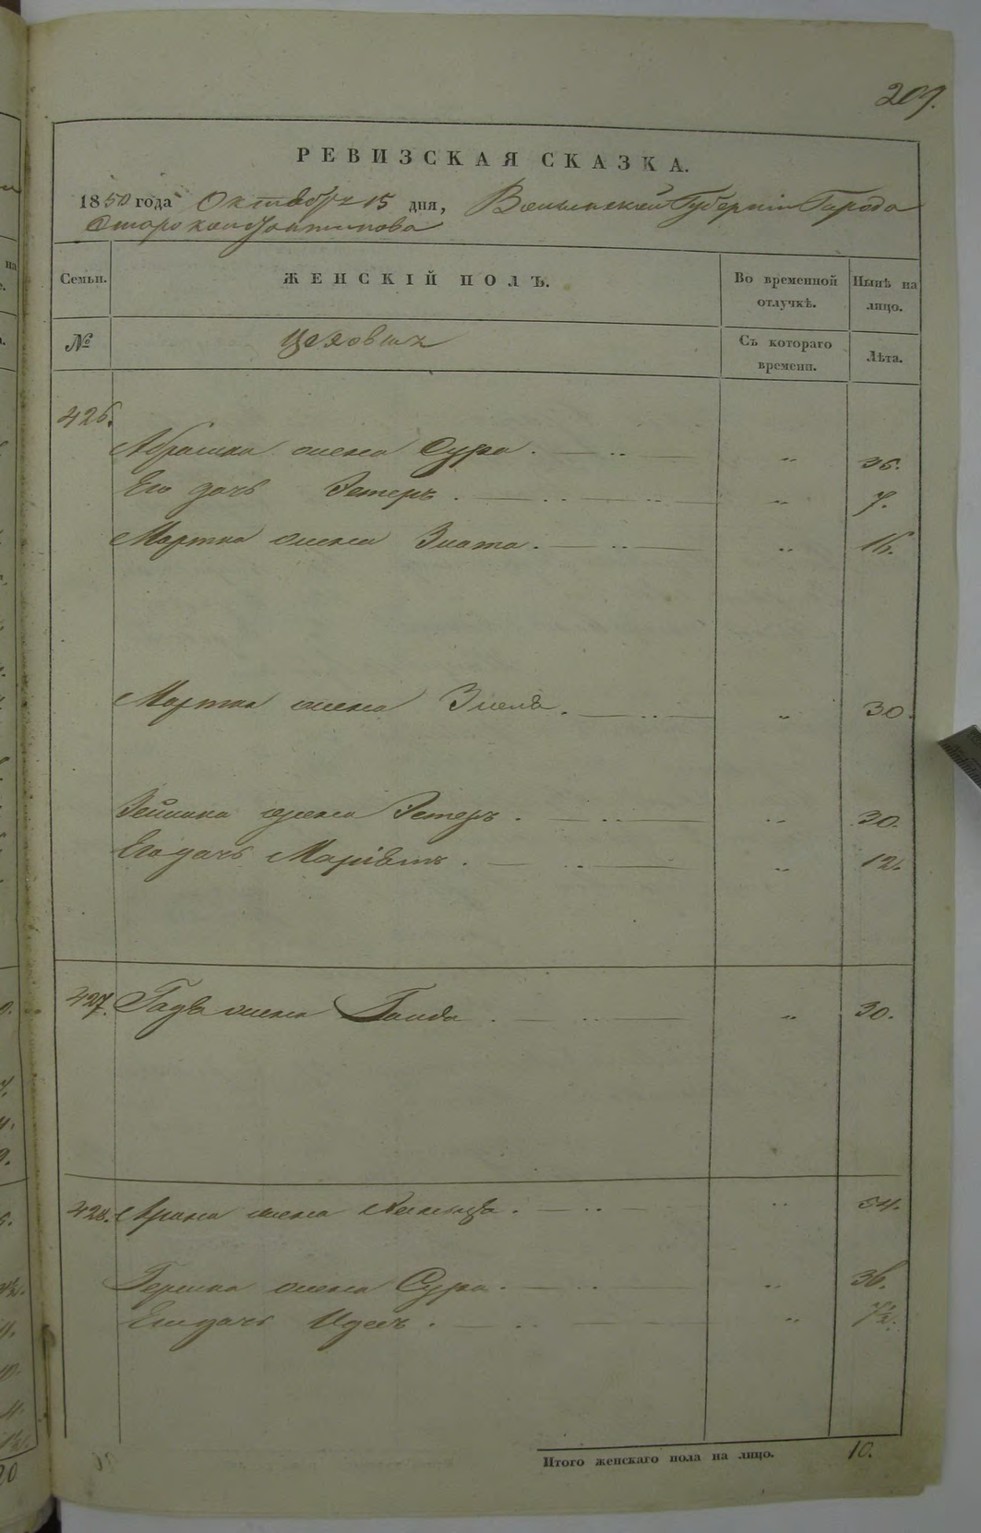 209.
РЕВИЗСКАЯ СКАЗКА.
1850 года Октября 15 дня, Волынской Губерніи Города
Староконстантинова
Семьи. ЖЕНСКІЙ ПОЛЪ. Во временной отлучкѣ. Нынѣ на лицо.
№ Цеховыхъ Съ котораго времени. Лѣта.
426.
Абрамка жена Сура. — .. — „ 36.
Его дочь Эстеръ. — .. — .. — „ 7.
Мортка жена Злота. — .. — „ 16.
Мортка жена Зисля. — .. — „ 30.
жена Эстеръ. — .. — „ 30.
Его дочь Маріамъ. — .. — „ 12.
427. жена — .. — „ 30.
428. жена — .. — „ 54.
Гершка жена Сура. — .. — „ 36.
Его дочь — .. — „ 7½.
Итого женскаго пола на лицо. 10.